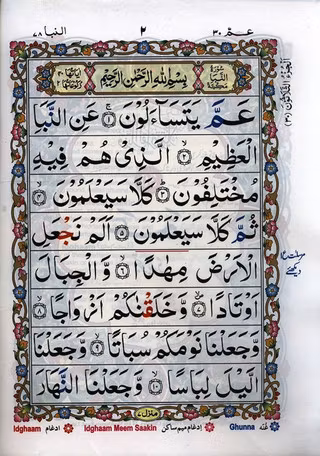 عمّ ٣٠
٢
النبا ٧٨
سُوْرَةُ النَّبَإِ مَكِّيَّةٌ
بِسْمِ اللهِ الرَّحْمٰنِ الرَّحِيْمِ
عَمَّ يَتَسَآءَلُوْنَ ۚ ﴿۱﴾ عَنِ النَّبَاِ
الْعَظِيْمِ ﴿۲﴾ الَّذِيْ هُمْ فِيْهِ
مُخْتَلِفُوْنَ ﴿۳﴾ كَلَّا سَيَعْلَمُوْنَ ﴿۴﴾
ثُمَّ كَلَّا سَيَعْلَمُوْنَ ﴿۵﴾ اَلَمْ نَجْعَلِ
الْاَرْضَ مِهٰدًا ﴿۶﴾ وَّالْجِبَالَ
اَوْتَادًا ﴿۷﴾ وَّخَلَقْنٰكُمْ اَزْوَاجًا ﴿۸﴾
وَّجَعَلْنَا نَوْمَكُمْ سُبَاتًا ﴿۹﴾ وَّجَعَلْنَا
الَّيْلَ لِبَاسًا ﴿۱۰﴾ وَّجَعَلْنَا النَّهَارَ
منزل ٧
Idghaam ادغام
Idghaam Meem Saakin إدغام ميم ساكن
Ghunna غنه